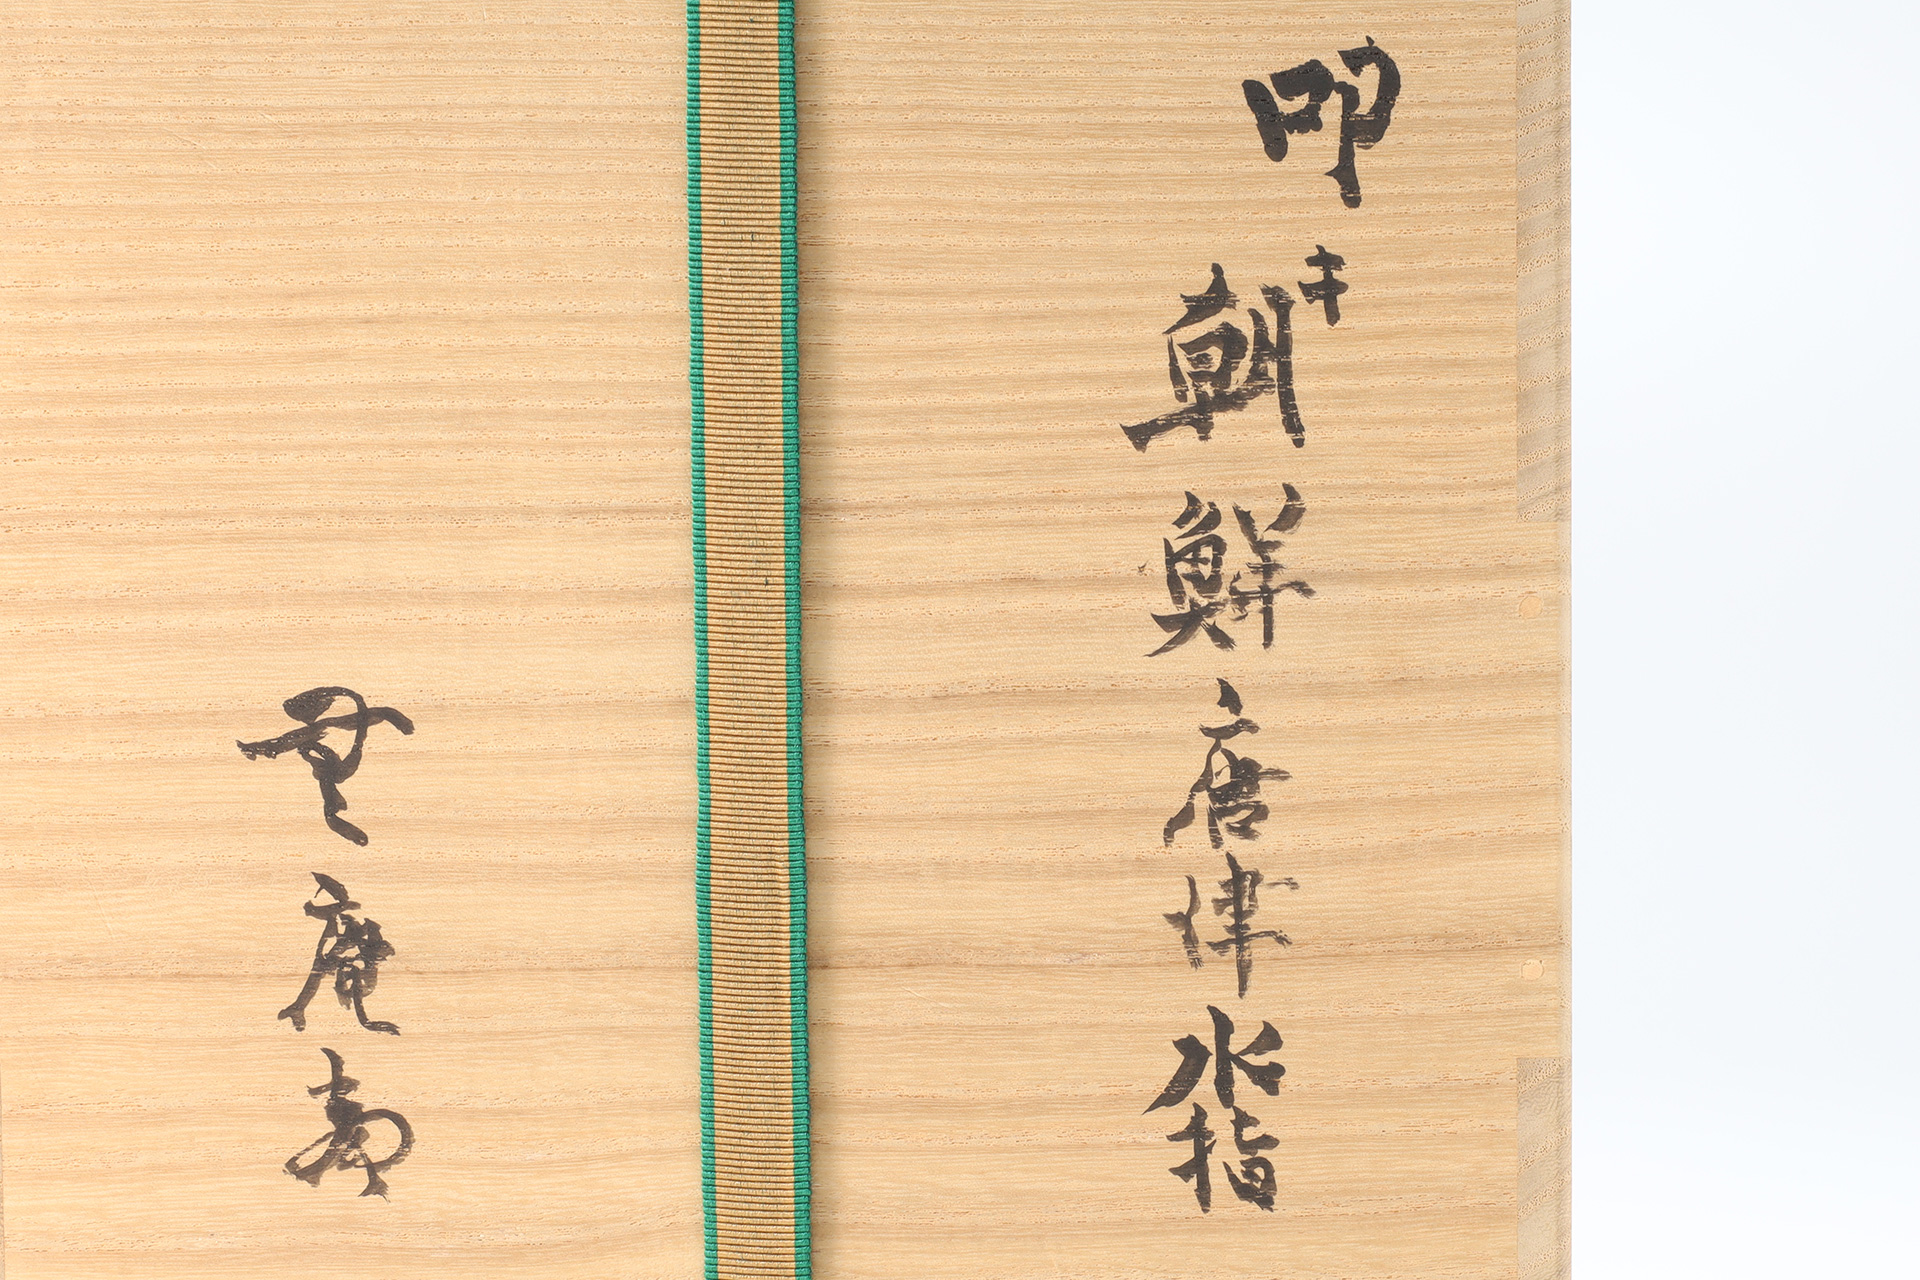 叩キ朝鮮唐津水指
無庵